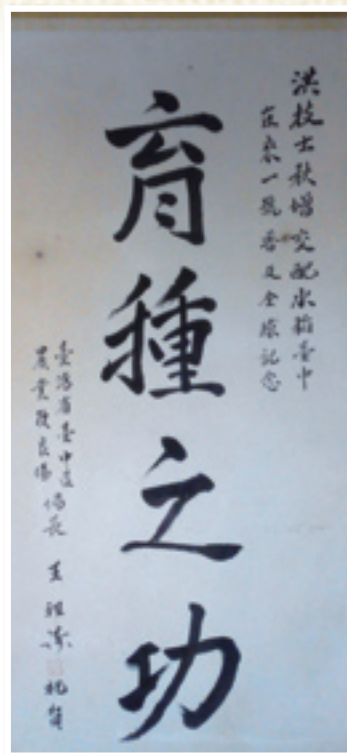 洪技士秋增交配水稻臺中
在來一號普及全球記念
育種之功
臺灣省臺中區
農業改良場 場長 王祖濤 祝賀